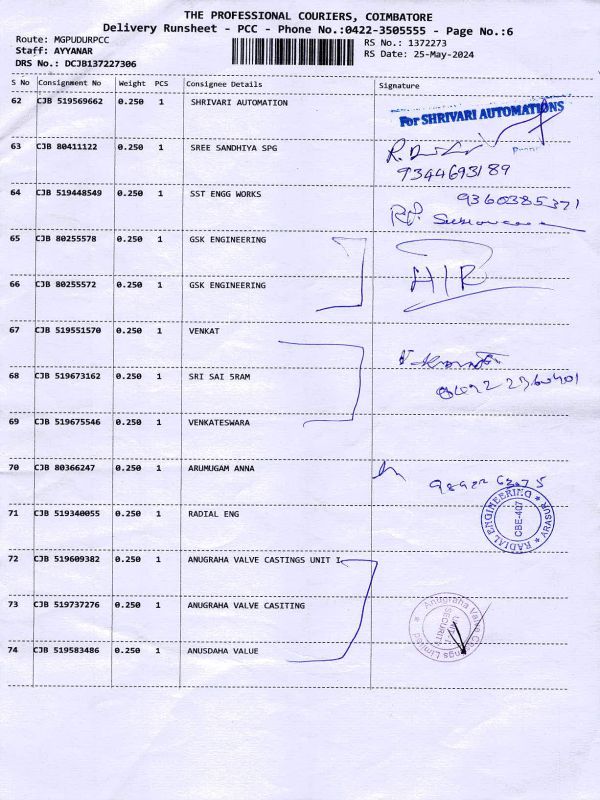 THE PROFESSIONAL COURIERS, COIMBATORE
Delivery Runsheet - PCC - Phone No.:0422-3505555 - Page No.:6
Route: MGPUDURPCC
Staff: AYYANAR
DRS No.: DCJB137227306
RS No.: 1372273
RS Date: 25-May-2024
S No Consignment No Weight PCS Consignee Details Signature
62 CJB 519569662 0.250 1 SHRIVARI AUTOMATION
For SHRIVARI AUTOMATIONS
63 CJB 80411122 0.250 1 SREE SANDHIYA SPG
9344693189
64 CJB 519448549 0.250 1 SST ENGG WORKS 9360385371
65 CJB 80255578 0.250 1 GSK ENGINEERING
66 CJB 80255572 0.250 1 GSK ENGINEERING
67 CJB 519551570 0.250 1 VENKAT
68 CJB 519673162 0.250 1 SRI SAI 5RAM
69 CJB 519675546 0.250 1 VENKATESWARA
70 CJB 80366247 0.250 1 ARUMUGAM ANNA
71 CJB 519340055 0.250 1 RADIAL ENG
RADIAL ENGINEERING
CBE-407
ARASUR
72 CJB 519609382 0.250 1 ANUGRAHA VALVE CASTINGS UNIT I
73 CJB 519737276 0.250 1 ANUGRAHA VALVE CASITING
Anugraha Valve Castings Limited
74 CJB 519583486 0.250 1 ANUSDAHA VALUE